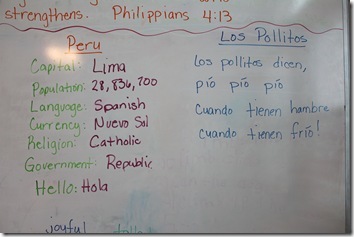 strengthens. Philippians 4:13
Peru
Capital: Lima
Population: 28,836,700
Language: Spanish
Currency: Nuevo Sol
Religion: Catholic
Government: Republic
Hello: Hola
Los Pollitos
Los pollitos dicen,
pío pío pío
Cuando tienen hambre
cuando tienen frío!
joyful